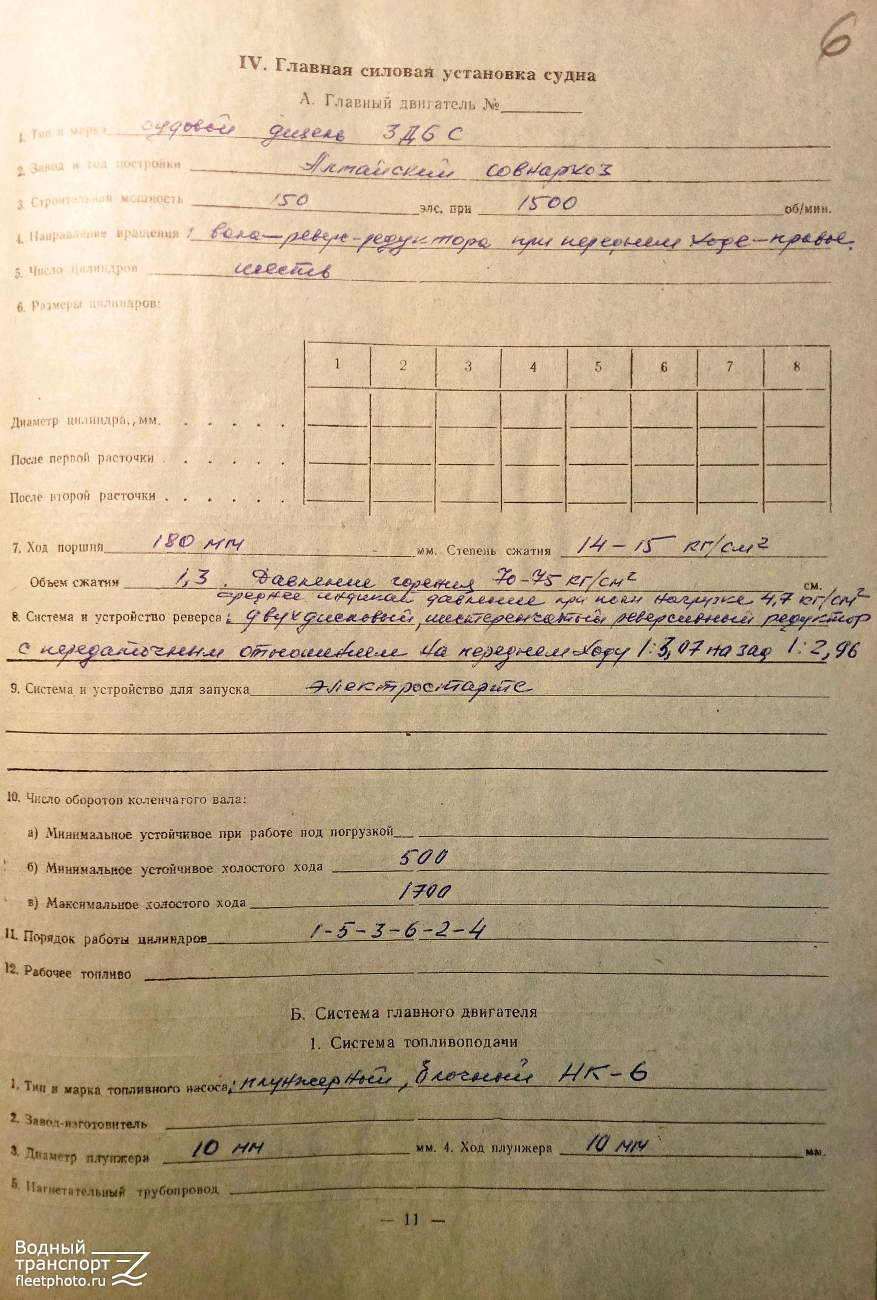 6
IV. Главная силовая установка судна
А. Главный двигатель №
1. Тип и марка судовой дизель 3Д6 С
2. Завод и год постройки Алтайский совнархоз
3. Строительная мощность 150 элс, при 1500 об/мин.
4. Направление вращения: вала-реверс-редуктора при переднем ходе-правое.
5. Число цилиндров шесть
6. Размеры цилиндров:
1 2 3 4 5 6 7 8
Диаметр цилиндра, мм. . . . . .
После первой расточки . . . . . .
После второй расточки . . . . . .
7. Ход поршня 180 мм мм. Степень сжатия 14-15 кг/см²
Объем сжатия 1,3. Давление горения 70-75 кг/см² см.
среднее индикат давление при полн нагрузке 4,7 кг/см²
8. Система и устройство реверса: двухдисковый, шестеренчатый реверсивный редуктор
с передаточным отношением на переднем ходу 1:3,07 назад 1:2,96
9. Система и устройство для запуска электростарте
10. Число оборотов коленчатого вала:
а) Минимальное устойчивое при работе под погрузкой
б) Минимальное устойчивое холостого хода 500
в) Максимальное холостого хода 1700
11. Порядок работы цилиндров 1-5-3-6-2-4
12. Рабочее топливо
Б. Система главного двигателя
1. Система топливоподачи
1. Тип и марка топливного насоса: плунжерный, блочный НК-6
2. Завод-изготовитель
3. Диаметр плунжера 10 мм мм. 4. Ход плунжера 10 мм мм.
5. Нагнетательный трубопровод
— 11 —
Водный
транспорт
fleetphoto.ru